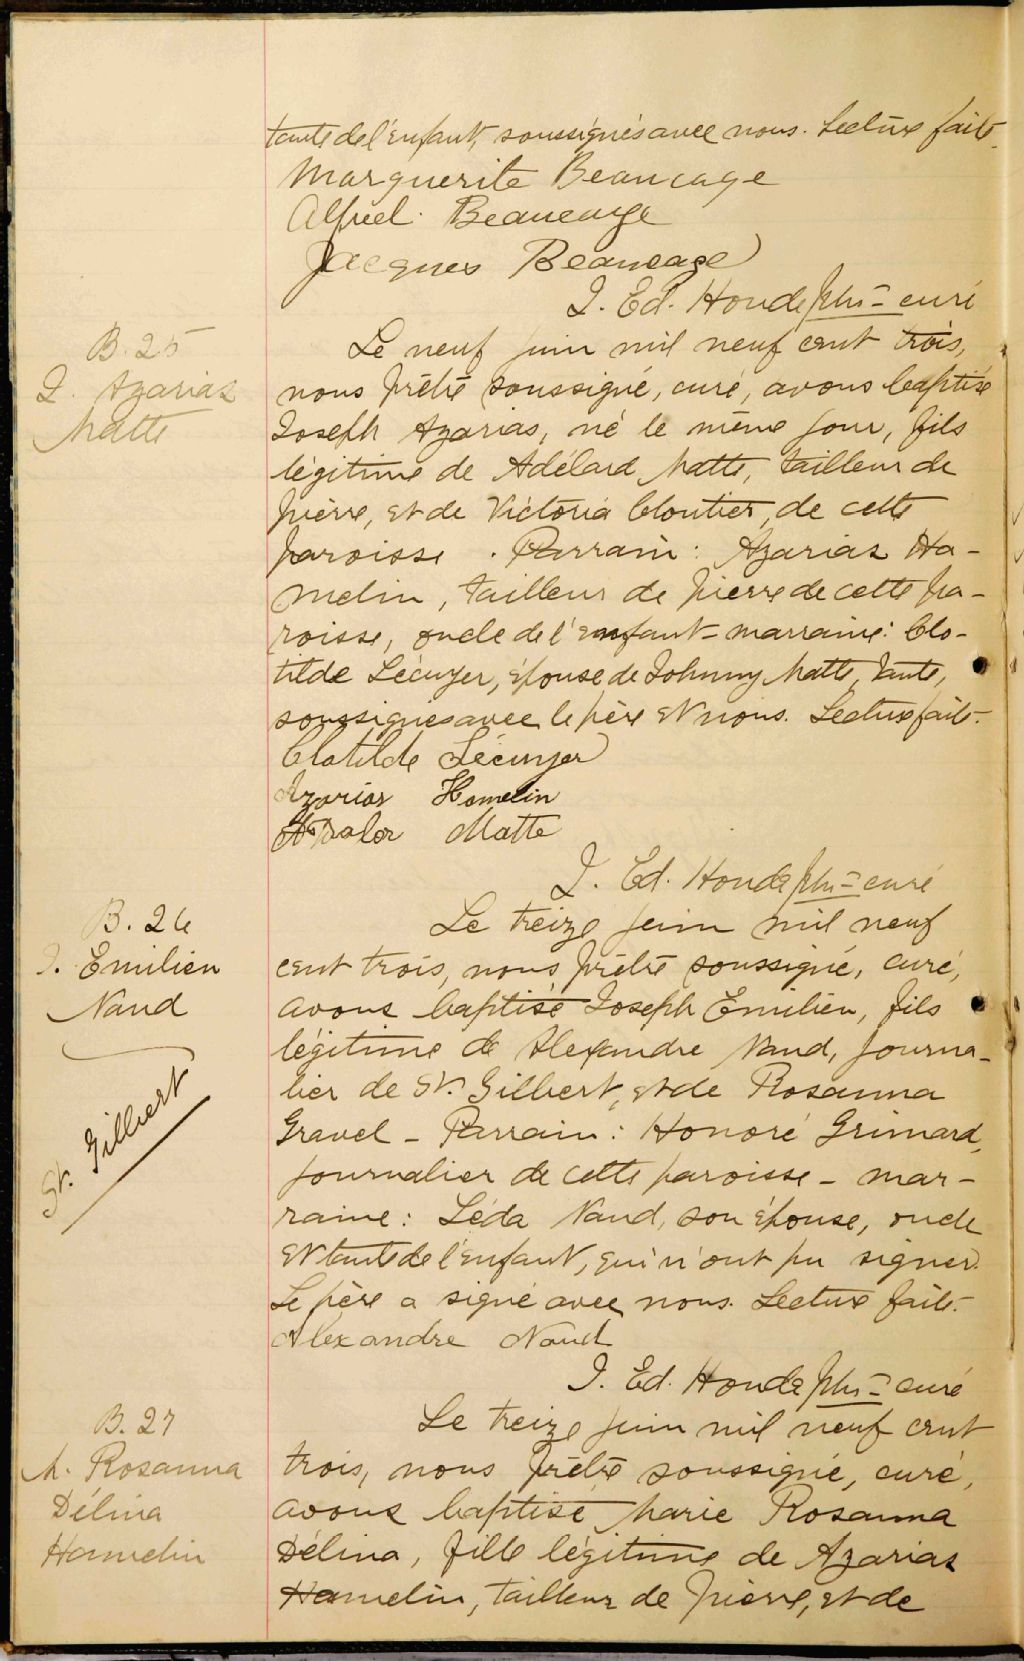 tante de l'enfant, soussignés avec nous. Lecture faite.
Marguerite Beaucage
Alfred Beaucage
Jacques Beaucage
J. Ed. Houde ptre curé
B. 25
J. Azarias
Matte
Le neuf juin mil neuf cent trois,
nous prêtre soussigné, curé, avons baptisé
Joseph Azarias, né le même jour, fils
légitime de Adélard Matte, tailleur de
pierre, et de Victoria Cloutier, de cette
paroisse . Parrain : Azarias Ha-
melin, tailleur de pierre de cette pa-
roisse, oncle de l'enfant - marraine : Clo-
tilde Lécuyer, épouse de Johnny Matte, tante,
soussignés avec le père et nous. Lecture faite.
Clotilde Lécuyer
Azarias Hamelin
Matte
J. Ed. Houde ptre curé
B. 26
J. Emilien
Naud
St. Gilbert
Le treize juin mil neuf
cent trois, nous prêtre soussigné, curé,
avons baptisé Joseph Emilien, fils
légitime de Alexandre Naud, journa-
lier de St. Gilbert, et de Rosanna
Gravel - Parrain : Honoré Grimard,
journalier de cette paroisse - mar-
raine : Léda Naud, son épouse, oncle
et tante de l'enfant, qui n'ont pu signer.
Le père a signé avec nous. Lecture faite.
Alexandre Naud
J. Ed. Houde ptre curé
B. 27
M. Rosanna
Délina
Hamelin
Le treize juin mil neuf cent
trois, nous prêtre soussigné, curé,
avons baptisé Marie Rosanna
Délina, fille légitime de Azarias
Hamelin, tailleur de pierre, et de